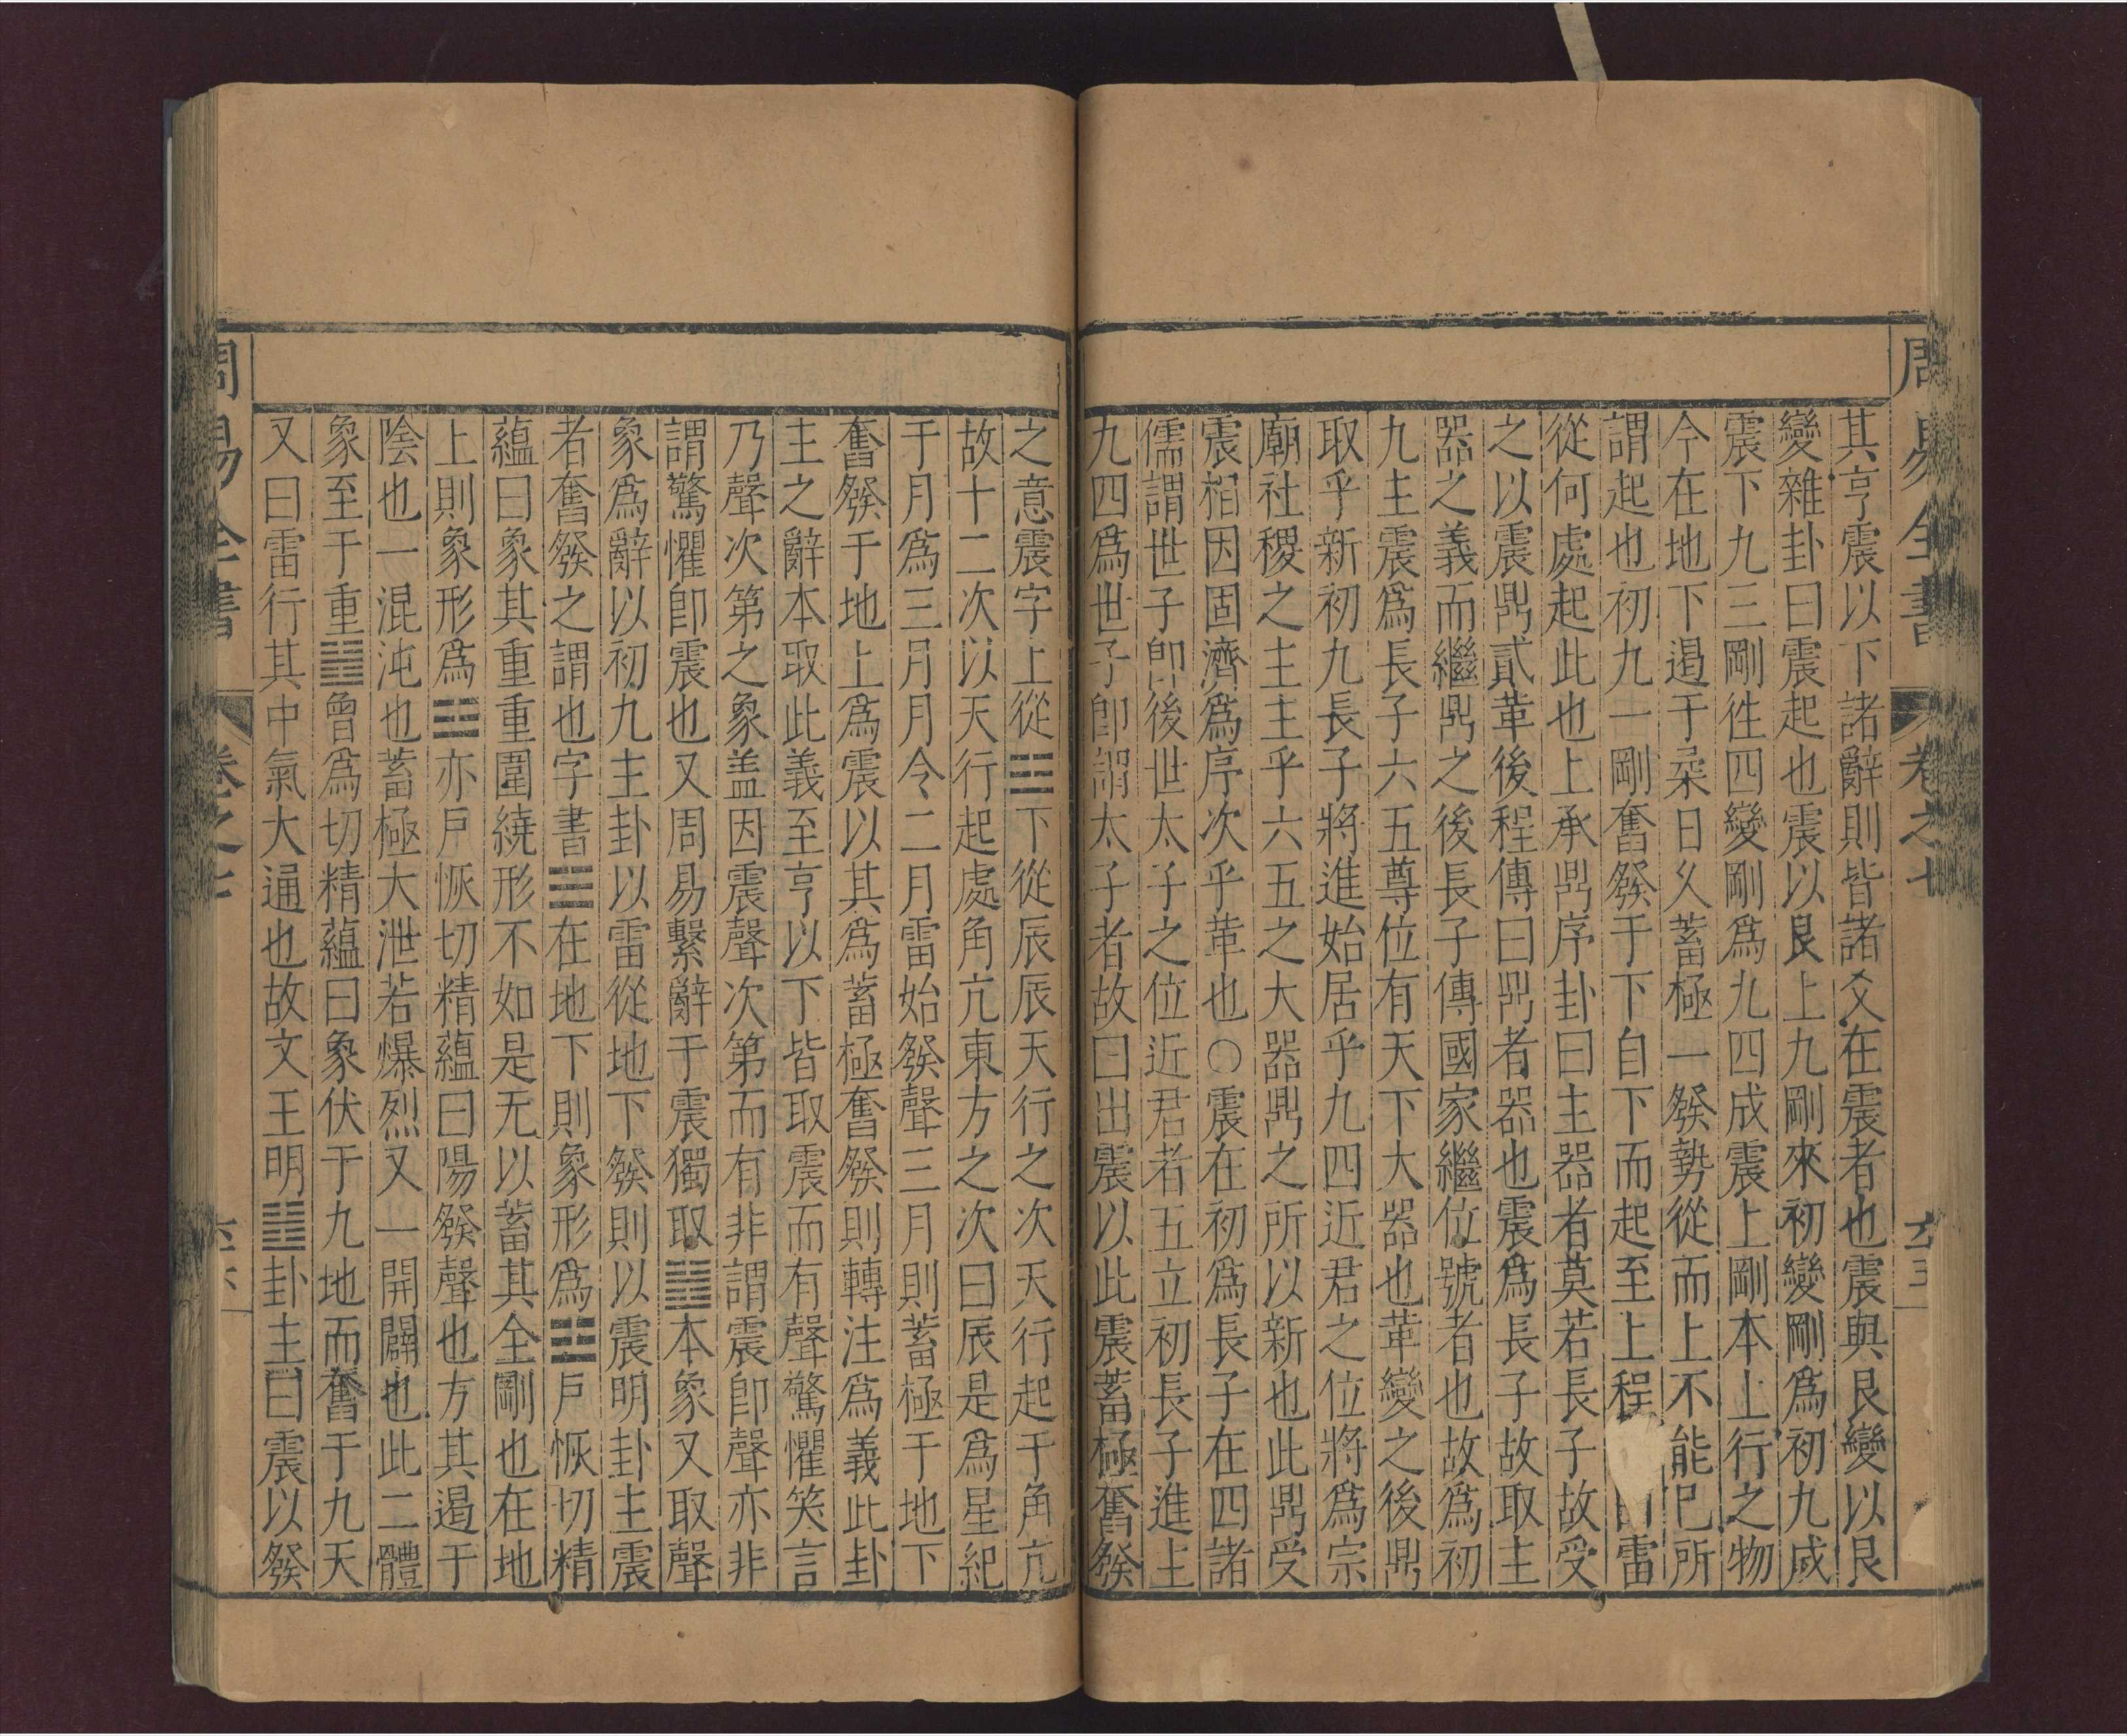 周易全書
卷之七
其亨震以下諸辭則皆諸爻在震者也震與艮變以艮
變雜卦曰震起也震以艮上九剛來初變剛爲初九成
震下九三剛徃四變剛爲九四成震上剛本上行之物
今在地下遏于朶日久蓄極一發勢從而上不能已所
謂起也初九一剛奮發于下自下而起至上程曰雷
從何處起此也上承鼎序卦曰主器者莫若長子故受
之以震鼎貳革後程傳曰鼎者器也震爲長子故取主
器之義而繼鼎之後長子傳國家繼位號者也故爲初
九主震爲長子六五尊位有天下大器也革變之後鼎
取乎新初九長子將進始居乎九四近君之位將爲宗
廟社稷之主主乎六五之大器鼎之所以新也此鼎受
震相因固濟爲序次乎革也○震在初爲長子在四諸
儒謂世子卽後世太子之位近君者五立初長子進上
九四爲世子卽謂太子者故曰出震以此震蓄極奮發
之意震字上從☳下從辰辰天行之次天行起于角亢
故十二次以天行起處角亢東方之次曰辰是爲星紀
于月爲三月月令二月雷始發聲三月則蓄極于地下
奮發于地上爲震以其爲蓄極奮發則轉注爲義此卦
主之辭本取此義至亨以下皆取震而有聲驚懼笑言
乃聲次第之象盖因震聲次第而有非謂震卽聲亦非
謂驚懼卽震也又周易繫辭于震獨取䷲本象又取聲
象爲辭以初九主卦以雷從地下發則以震明卦主震
者奮發之謂也字書☳在地下則象形爲☳戶恢切精
蘊曰象其重重圍繞形不如是无以蓄其全剛也在地
上則象形爲☳亦戶恢切精蘊曰陽發聲也方其遏于
陰也一混沌也蓄極大泄若爆烈又一開闢也此二體
象至于重䷲曾爲切精蘊曰象伏于九地而奮于九天
又曰雷行其中氣大通也故文王明䷲卦主曰震以發
周易全書
卷之七